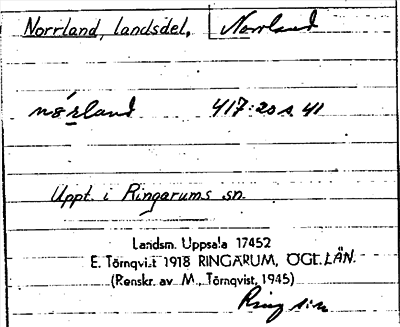 Norrland, landsdel, Norrland
417:20 s 41
Uppt. i Ringarums sn.
Landsm. Uppsala 17452
E. Törnqvist 1918 RINGARUM, ÖGL. LÄN.
(Renskr. av M. Törnqvist, 1945)
Ring